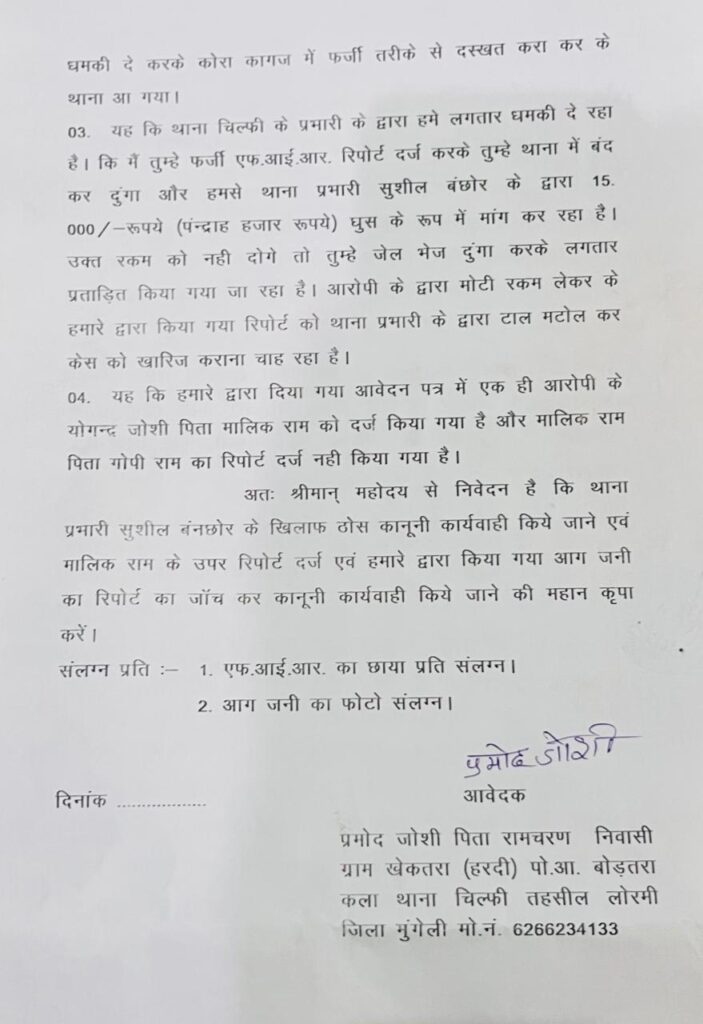 धमकी दे करके कोरा कागज में फर्जी तरीके से दस्खत करा कर के
थाना आ गया।
03. यह कि थाना चिल्फी के प्रभारी के द्वारा हमे लगतार धमकी दे रहा
है। कि मैं तुम्हे फर्जी एफ.आई.आर. रिपोर्ट दर्ज करके तुम्हे थाना में बंद
कर दुंगा और हमसे थाना प्रभारी सुशील बंछोर के द्वारा 15.
000/–रूपये (पंन्द्राह हजार रूपये) घुस के रूप में मांग कर रहा है।
उक्त रकम को नही दोगे तो तुम्हे जेल भेज दुंगा करके लगतार
प्रताड़ित किया गया जा रहा है। आरोपी के द्वारा मोटी रकम लेकर के
हमारे द्वारा किया गया रिपोर्ट को थाना प्रभारी के द्वारा टाल मटोल कर
केस को खारिज कराना चाह रहा है।
04. यह कि हमारे द्वारा दिया गया आवेदन पत्र में एक ही आरोपी के
योगन्द जोशी पिता मालिक राम को दर्ज किया गया है और मालिक राम
पिता गोपी राम का रिपोर्ट दर्ज नही किया गया है।
अतः श्रीमान् महोदय से निवेदन है कि थाना
प्रभारी सुशील बंनछोर के खिलाफ ठोस कानूनी कार्यवाही किये जाने एवं
मालिक राम के उपर रिपोर्ट दर्ज एवं हमारे द्वारा किया गया आग जनी
का रिपोर्ट का जॉच कर कानूनी कार्यवाही किये जाने की महान कृपा
करें।
संलग्न प्रति :– 1. एफ.आई.आर. का छाया प्रति संलग्न।
2. आग जनी का फोटो संलग्न।
प्रमोद जोशी
दिनांक .................. आवेदक
प्रमोद जोशी पिता रामचरण निवासी
ग्राम खेकतरा (हरदी) पो.आ. बोड़तरा
कला थाना चिल्फी तहसील लोरमी
जिला मुंगेली मो.नं. 6266234133